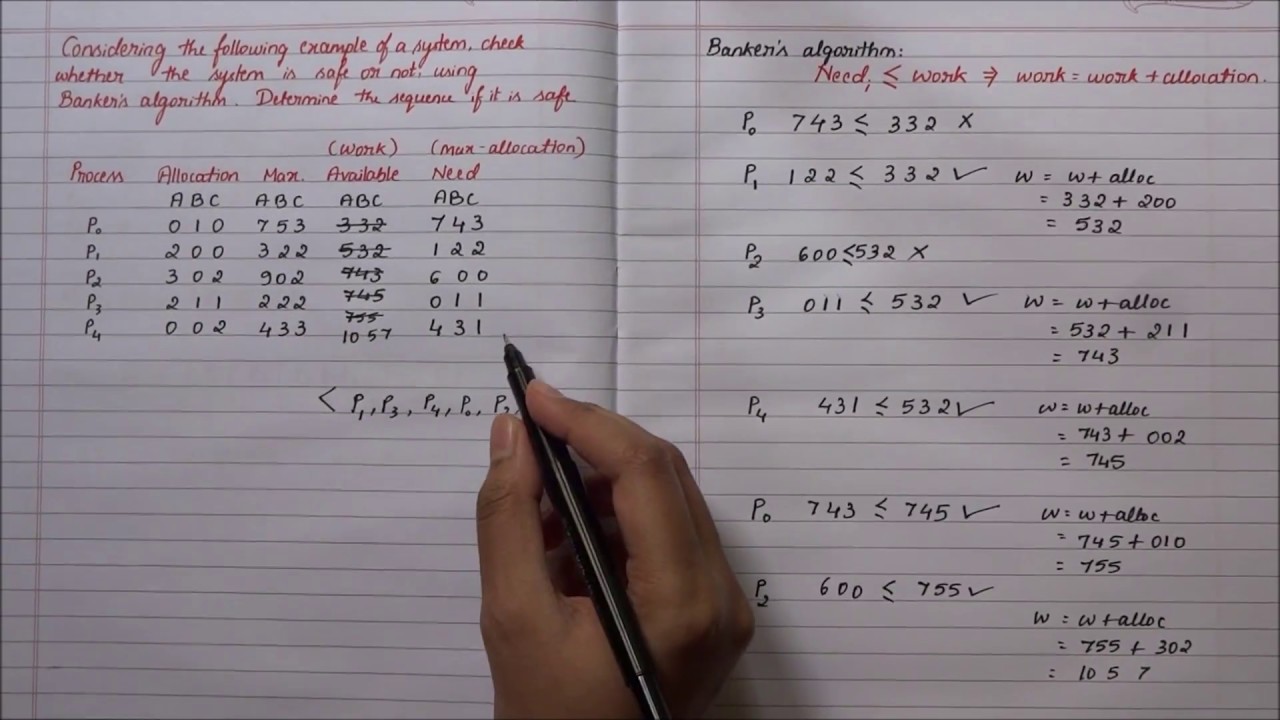 Considering the following example of a system, check
whether the system is safe or not, using
Banker's algorithm. Determine the sequence if it is safe
(work) (max-allocation)
Process Allocation Max. Available Need
A B C A B C A B C A B C
P0 0 1 0 7 5 3 3 3 2 7 4 3
P1 2 0 0 3 2 2 5 3 2 1 2 2
P2 3 0 2 9 0 2 7 4 3 6 0 0
P3 2 1 1 2 2 2 7 4 5 0 1 1
7 5 5
P4 0 0 2 4 3 3 10 5 7 4 3 1
< P1, P3, P4, P0, P2
Banker's algorithm:
Needi ≤ work ⇒ work = work + allocation.
P0 7 4 3 ≤ 3 3 2 ×
P1 1 2 2 ≤ 3 3 2 ✓ w = w + alloc
= 3 3 2 + 2 0 0
= 5 3 2
P2 6 0 0 ≤ 5 3 2 ×
P3 0 1 1 ≤ 5 3 2 ✓ w = w + alloc
= 5 3 2 + 2 1 1
= 7 4 3
P4 4 3 1 ≤ 5 3 2 ✓ w = w + alloc
= 7 4 3 + 0 0 2
= 7 4 5
P0 7 4 3 ≤ 7 4 5 ✓ w = w + alloc
= 7 4 5 + 0 1 0
= 7 5 5
P2 6 0 0 ≤ 7 5 5 ✓
w = w + alloc
= 7 5 5 + 3 0 2
= 10 5 7